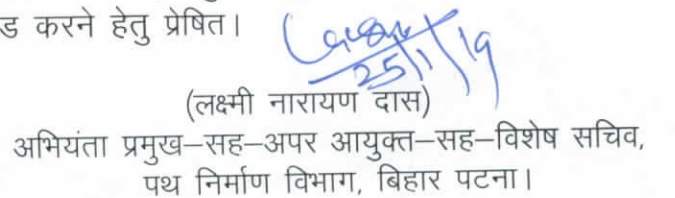 ड करने हेतु प्रेषित।
25/1/19
(लक्ष्मी नारायण दास)
अभियंता प्रमुख–सह–अपर आयुक्त–सह–विशेष सचिव,
पथ निर्माण विभाग, बिहार पटना।